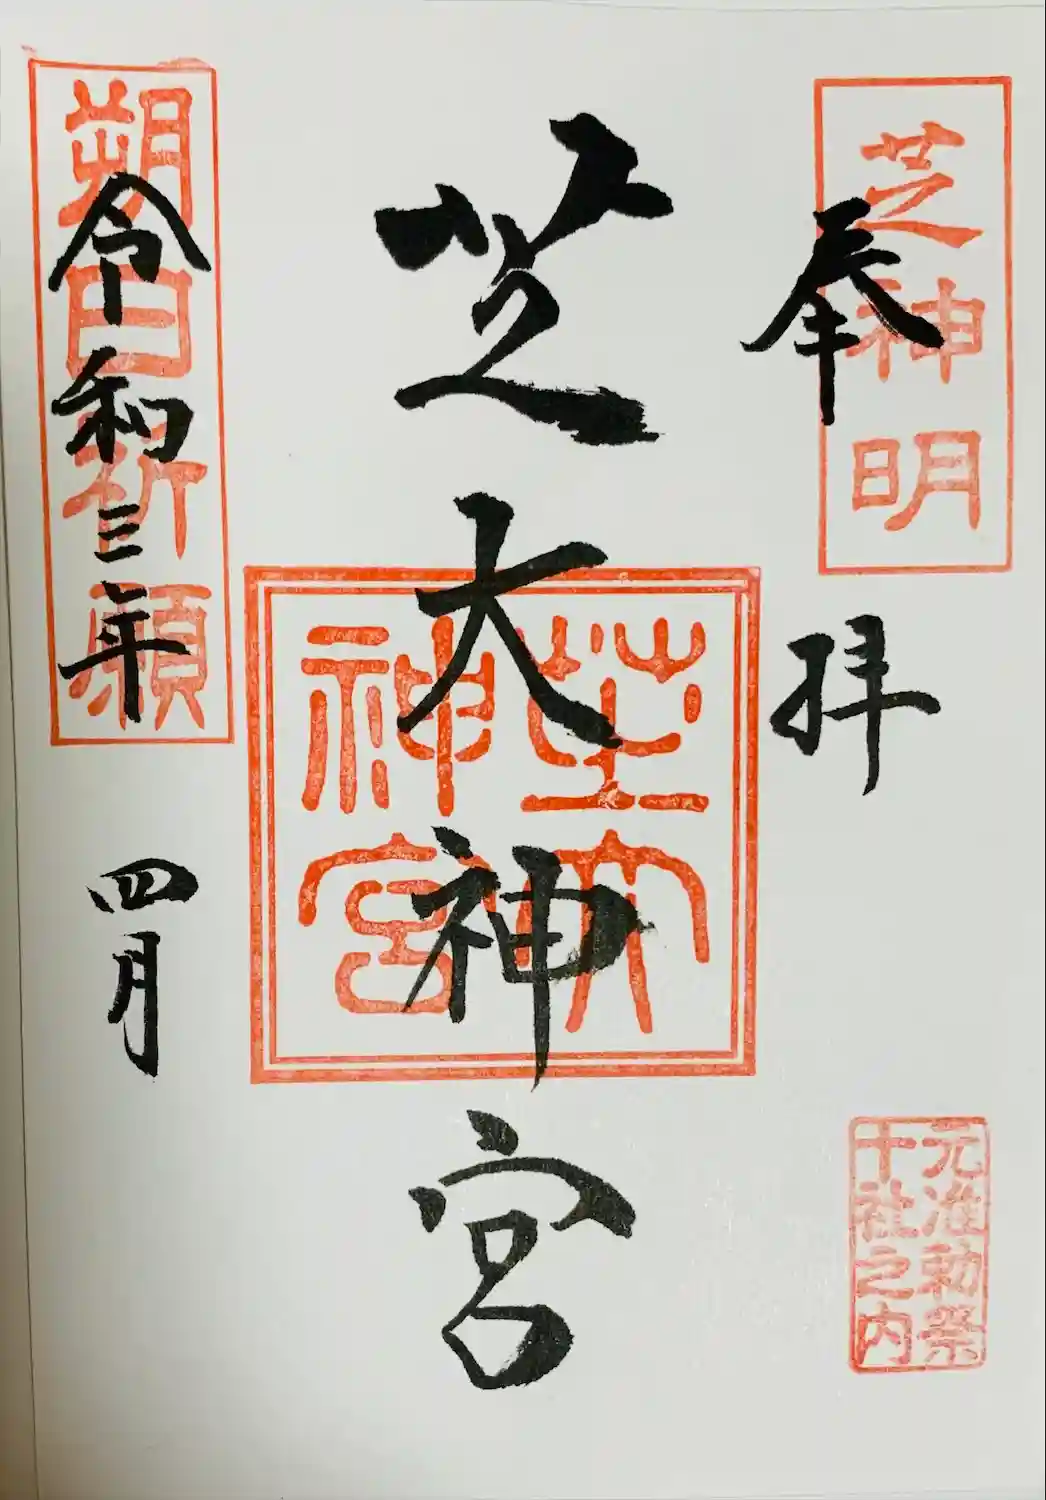 芝神明
奉拝
元准勅祭
十社之内
芝大神宮
芝大
神宮
朔日祈願
令和三年四月